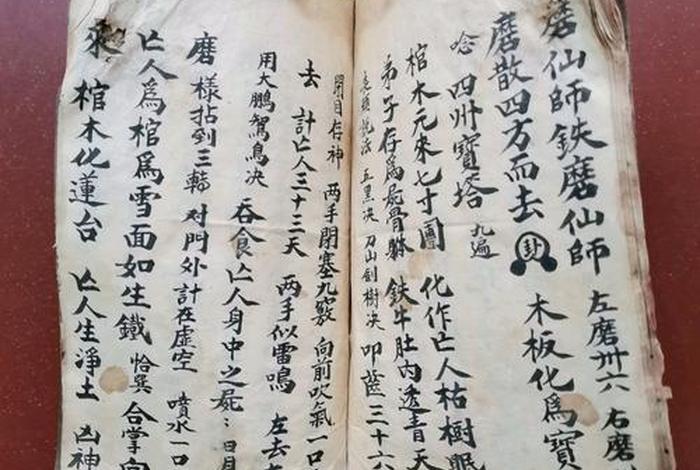 磨仙師鉄磨仙師 左磨卅六 右磨
磨散四方而去 卦 木板化爲寶
唸四州寶塔 九遍
棺木元來七寸團 化作亡人枯樹眠
弟子存爲屍骨躰 鉄牛肚内透青天
五黑决 刀山劍樹决 叩齒三十六
閉目存神 两手閉塞九竅 向前吹氣一口
去 計亡人三十三天 两手似雷鳴 左去
用大鵬鴛鳥决 吞食亡人身中之屍：日月
磨樣拈到三轉 对門外計在虛空 噴水一口
亡人爲棺爲雪面如生鐵 恰巽 合掌向
來棺木化蓮台 亡人生淨土 凶神